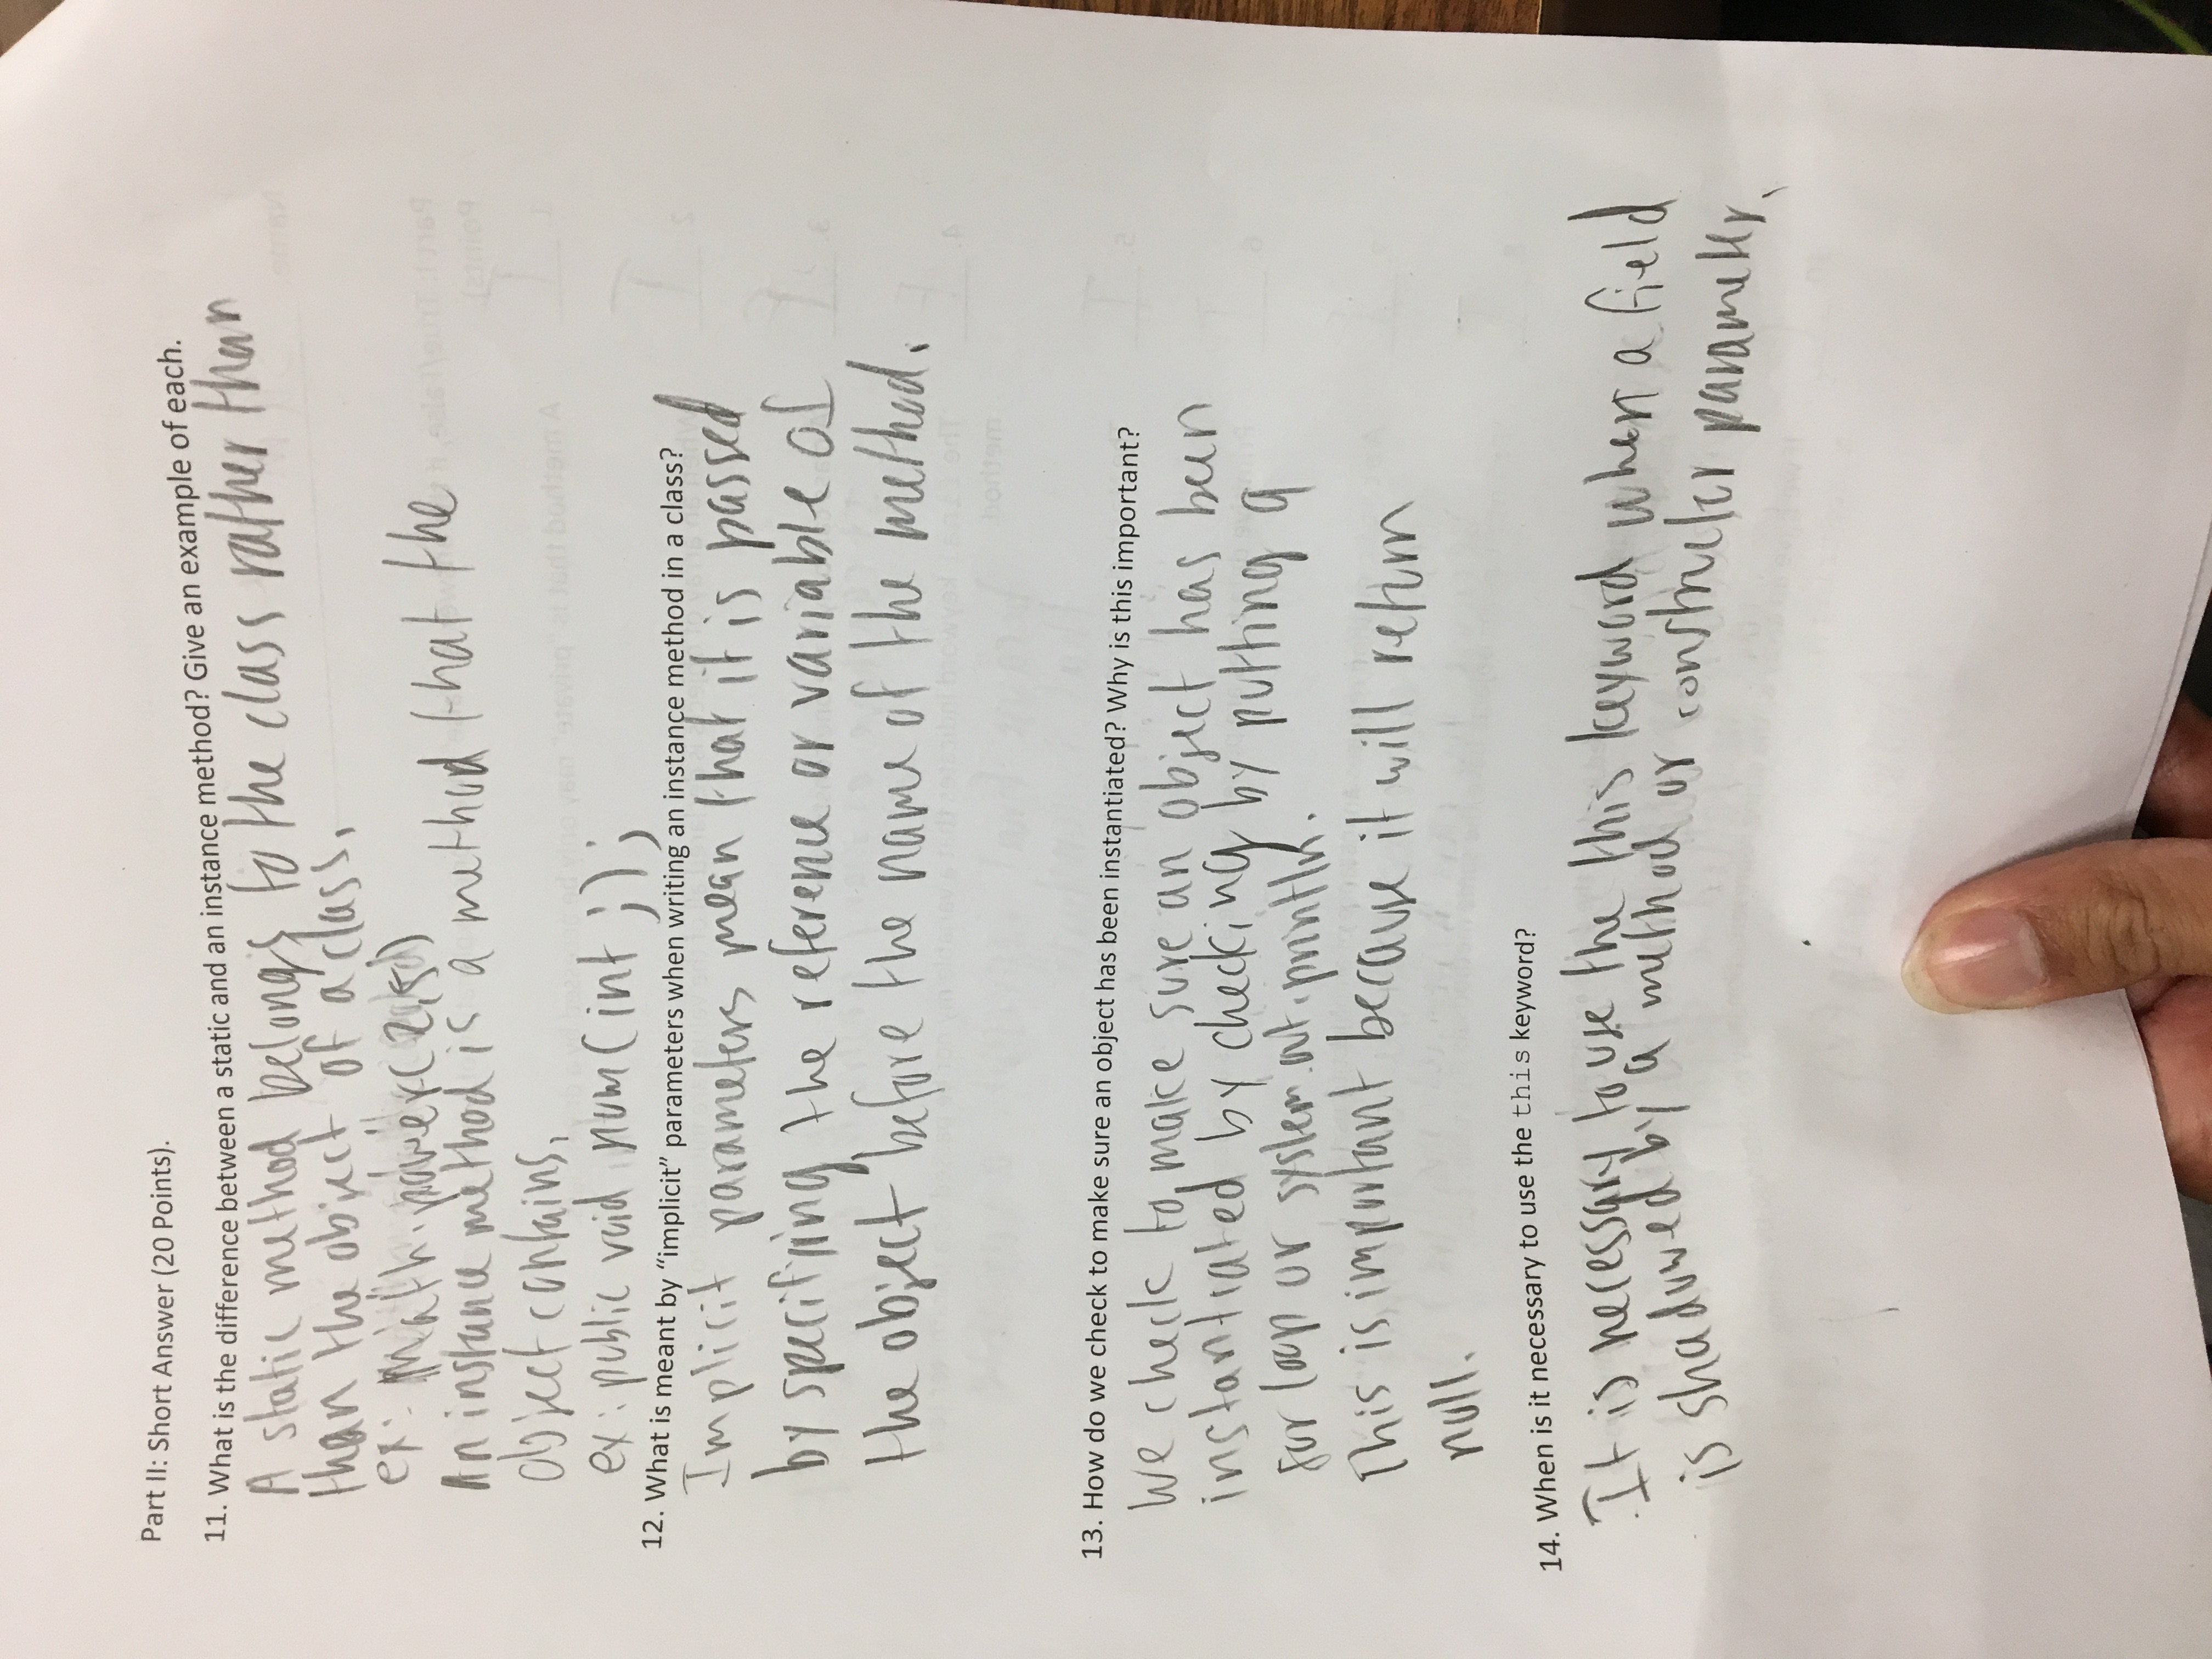 Part II: Short Answer (20 Points).
11. What is the difference between a static and an instance method? Give an example of each.
A static method belongs to the class rather than
than the object of a class,
ex: Math.power(2,5)
An instance method is a method that the
object contains,
ex: public void num(int j);
12. What is meant by “implicit” parameters when writing an instance method in a class?
Implicit parameters mean that it is passed
by specifying the reference or variable of
the object before the name of the method.
13. How do we check to make sure an object has been instantiated? Why is this important?
We check to make sure an object has been
instantiated by checking by putting a
for loop or system.out.println.
This is important because it will return
null.
14. When is it necessary to use the this keyword?
It is necessary to use the this keyword when a field
is shadowed by a method or constructer parameter.